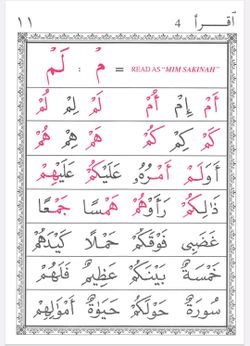 ١١ 4 اقرأ
لَمْ : مْ = READ AS "MIM SAKINAH"
أَمْ إِمْ أُمْ لَمْ لِمْ لُمْ
كَمْ كِمْ كُمْ هَمْ هِمْ هُمْ
أَوَلَمْ أَمْرُهُ عَلَيْكُمْ عَلَيْهِمْ
ذَالِكُمْ رَأَوْهُمْ هَمْسًا جَمْعًا
غَضَبِى فَوْقَكُمْ حَمْلًا كَيْدَهُمْ
خَمْسَةٌ بَيْنَكُمْ عَظِيمٌ فَلَهُمْ
سُورَةٌ حَوْلَكُمْ حَيَوٰةٌ أَمْوَٰلُهِمْ